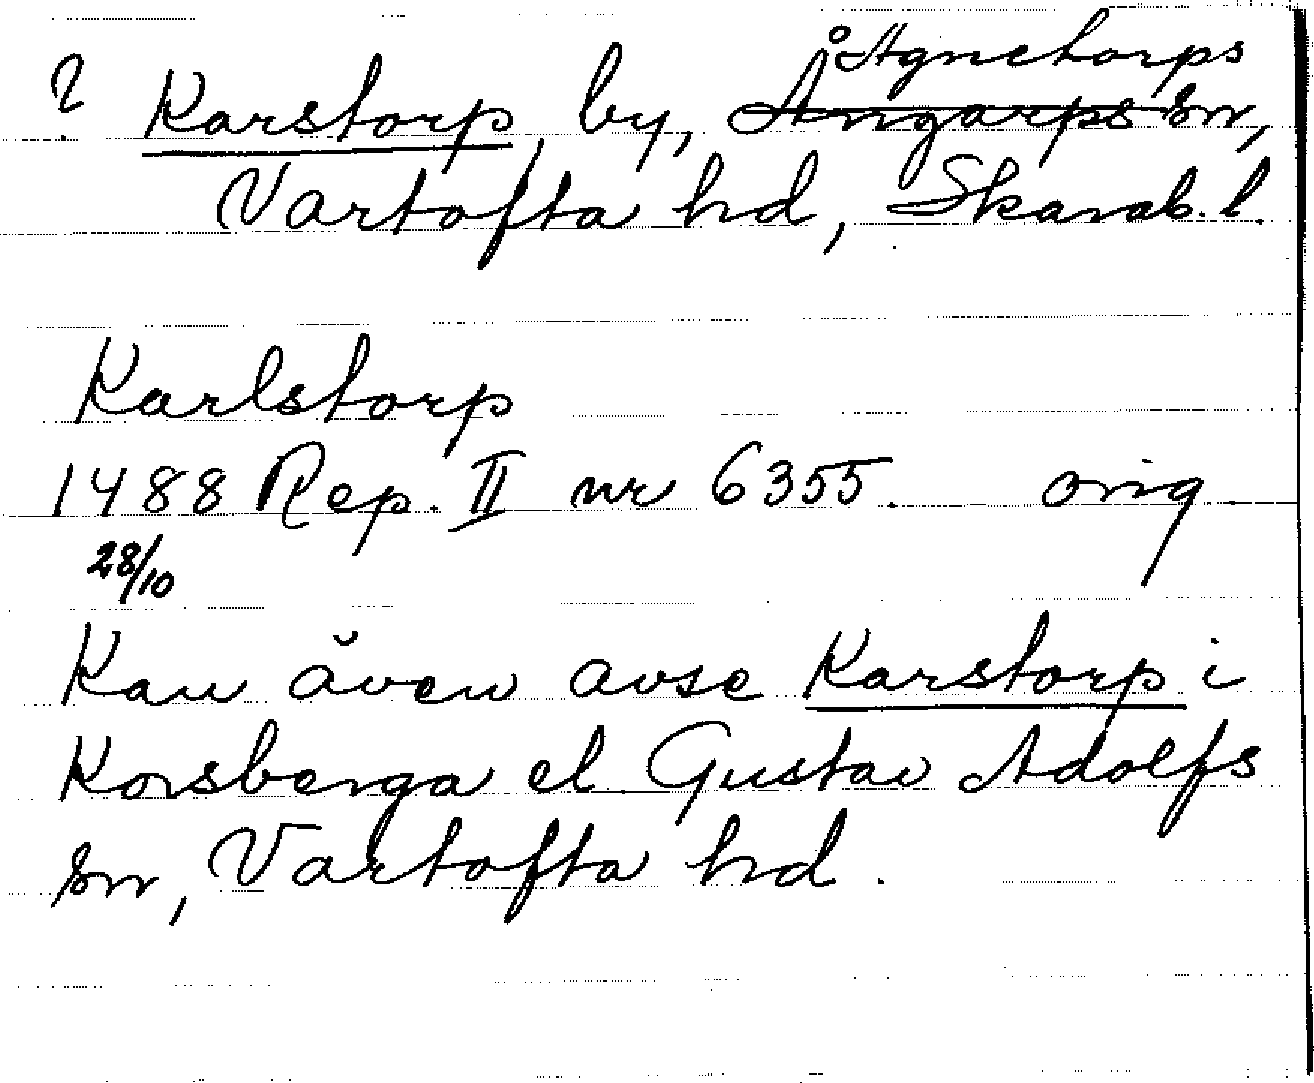 Agnetorps
? Karstorp by, Ångarps sn,
Vartofta hd, Skarab. l.
Karlstorp
1488 Rep. II nr 6355. orig
28/10
Kan även avse Karstorp i
Korsberga el. Gustav Adolfs
sn, Vartofta hd.